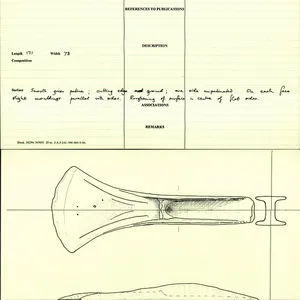 REFERENCES TO PUBLICATIONS
DESCRIPTION
Length 171 Width 73
Composition
Surface Smooth green patina; cutting edge not ground; one side unpatinated. On each face
slight mouldings parallel with sides. Roughening of surface in centre of flat sides.
ASSOCIATIONS
REMARKS